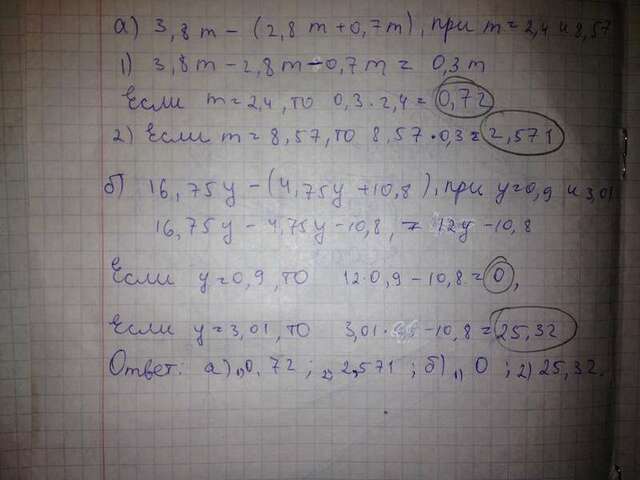 а) 3,8 m - (2,8 m + 0,7 m), при m = 2,4 и 8,57
1) 3,8 m - 2,8 m - 0,7 m = 0,3 m
Если m = 2,4, то 0,3 · 2,4 = 0,72
2) Если m = 8,57, то 8,57 · 0,3 = 2,571
б) 16,75 y - (4,75 y + 10,8), при y = 0,9 и 3,01
16,75 y - 4,75 y - 10,8 = 12y - 10,8
Если y = 0,9, то 12 · 0,9 - 10,8 = 0,
Если y = 3,01, то 3,01 · - 10,8 = 25,32
Ответ: а) 1) 0,72; 2) 2,571; б) 1) 0; 2) 25,32.